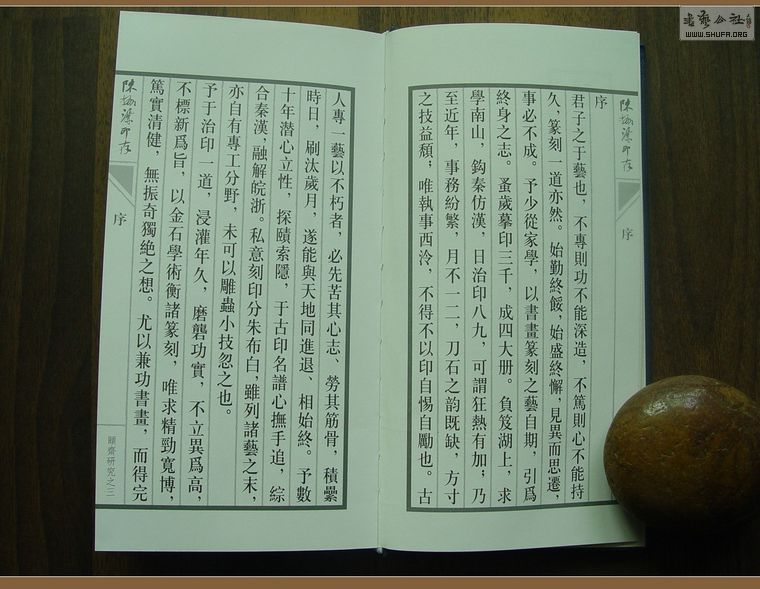 書藝公社
WWW.SHUFA.ORG
陳
印存
序
序
君子之于藝也，不專則功不能深造，不篤則心不能持
久，篆刻一道亦然。始勤終餒，始盛終懈，見異而思遷，
事必不成。予少從家學，以書畫篆刻之藝自期，引爲
終身之志。蚤歲摹印三千，成四大册。負笈湖上，求
學南山，鈎秦仿漢，日治印八九，可謂狂熱有加；乃
至近年，事務紛繁，月不一二，刀石之韵既缺，方寸
之技益頹，唯執事西泠，不得不以印自惕自勵也。古
人專一藝以不朽者，必先苦其心志、勞其筋骨，積纍
時日，刷汰歲月，遂能與天地同進退、相始終。予數
十年潜心立性，探賾索隱，于古印名譜心撫手追，綜
合秦漢，融解皖浙。私意刻印分朱布白，雖列諸藝之末，
亦自有專工分野，未可以雕蟲小技忽之也。
予于治印一道，浸灌年久，磨礱功實，不立異爲高，
不標新爲旨，以金石學術衡諸篆刻，唯求精勁寬博，
篤實清健，無振奇獨絶之想。尤以兼功書畫，而得完
陳
印存
序
頤齋研究之三